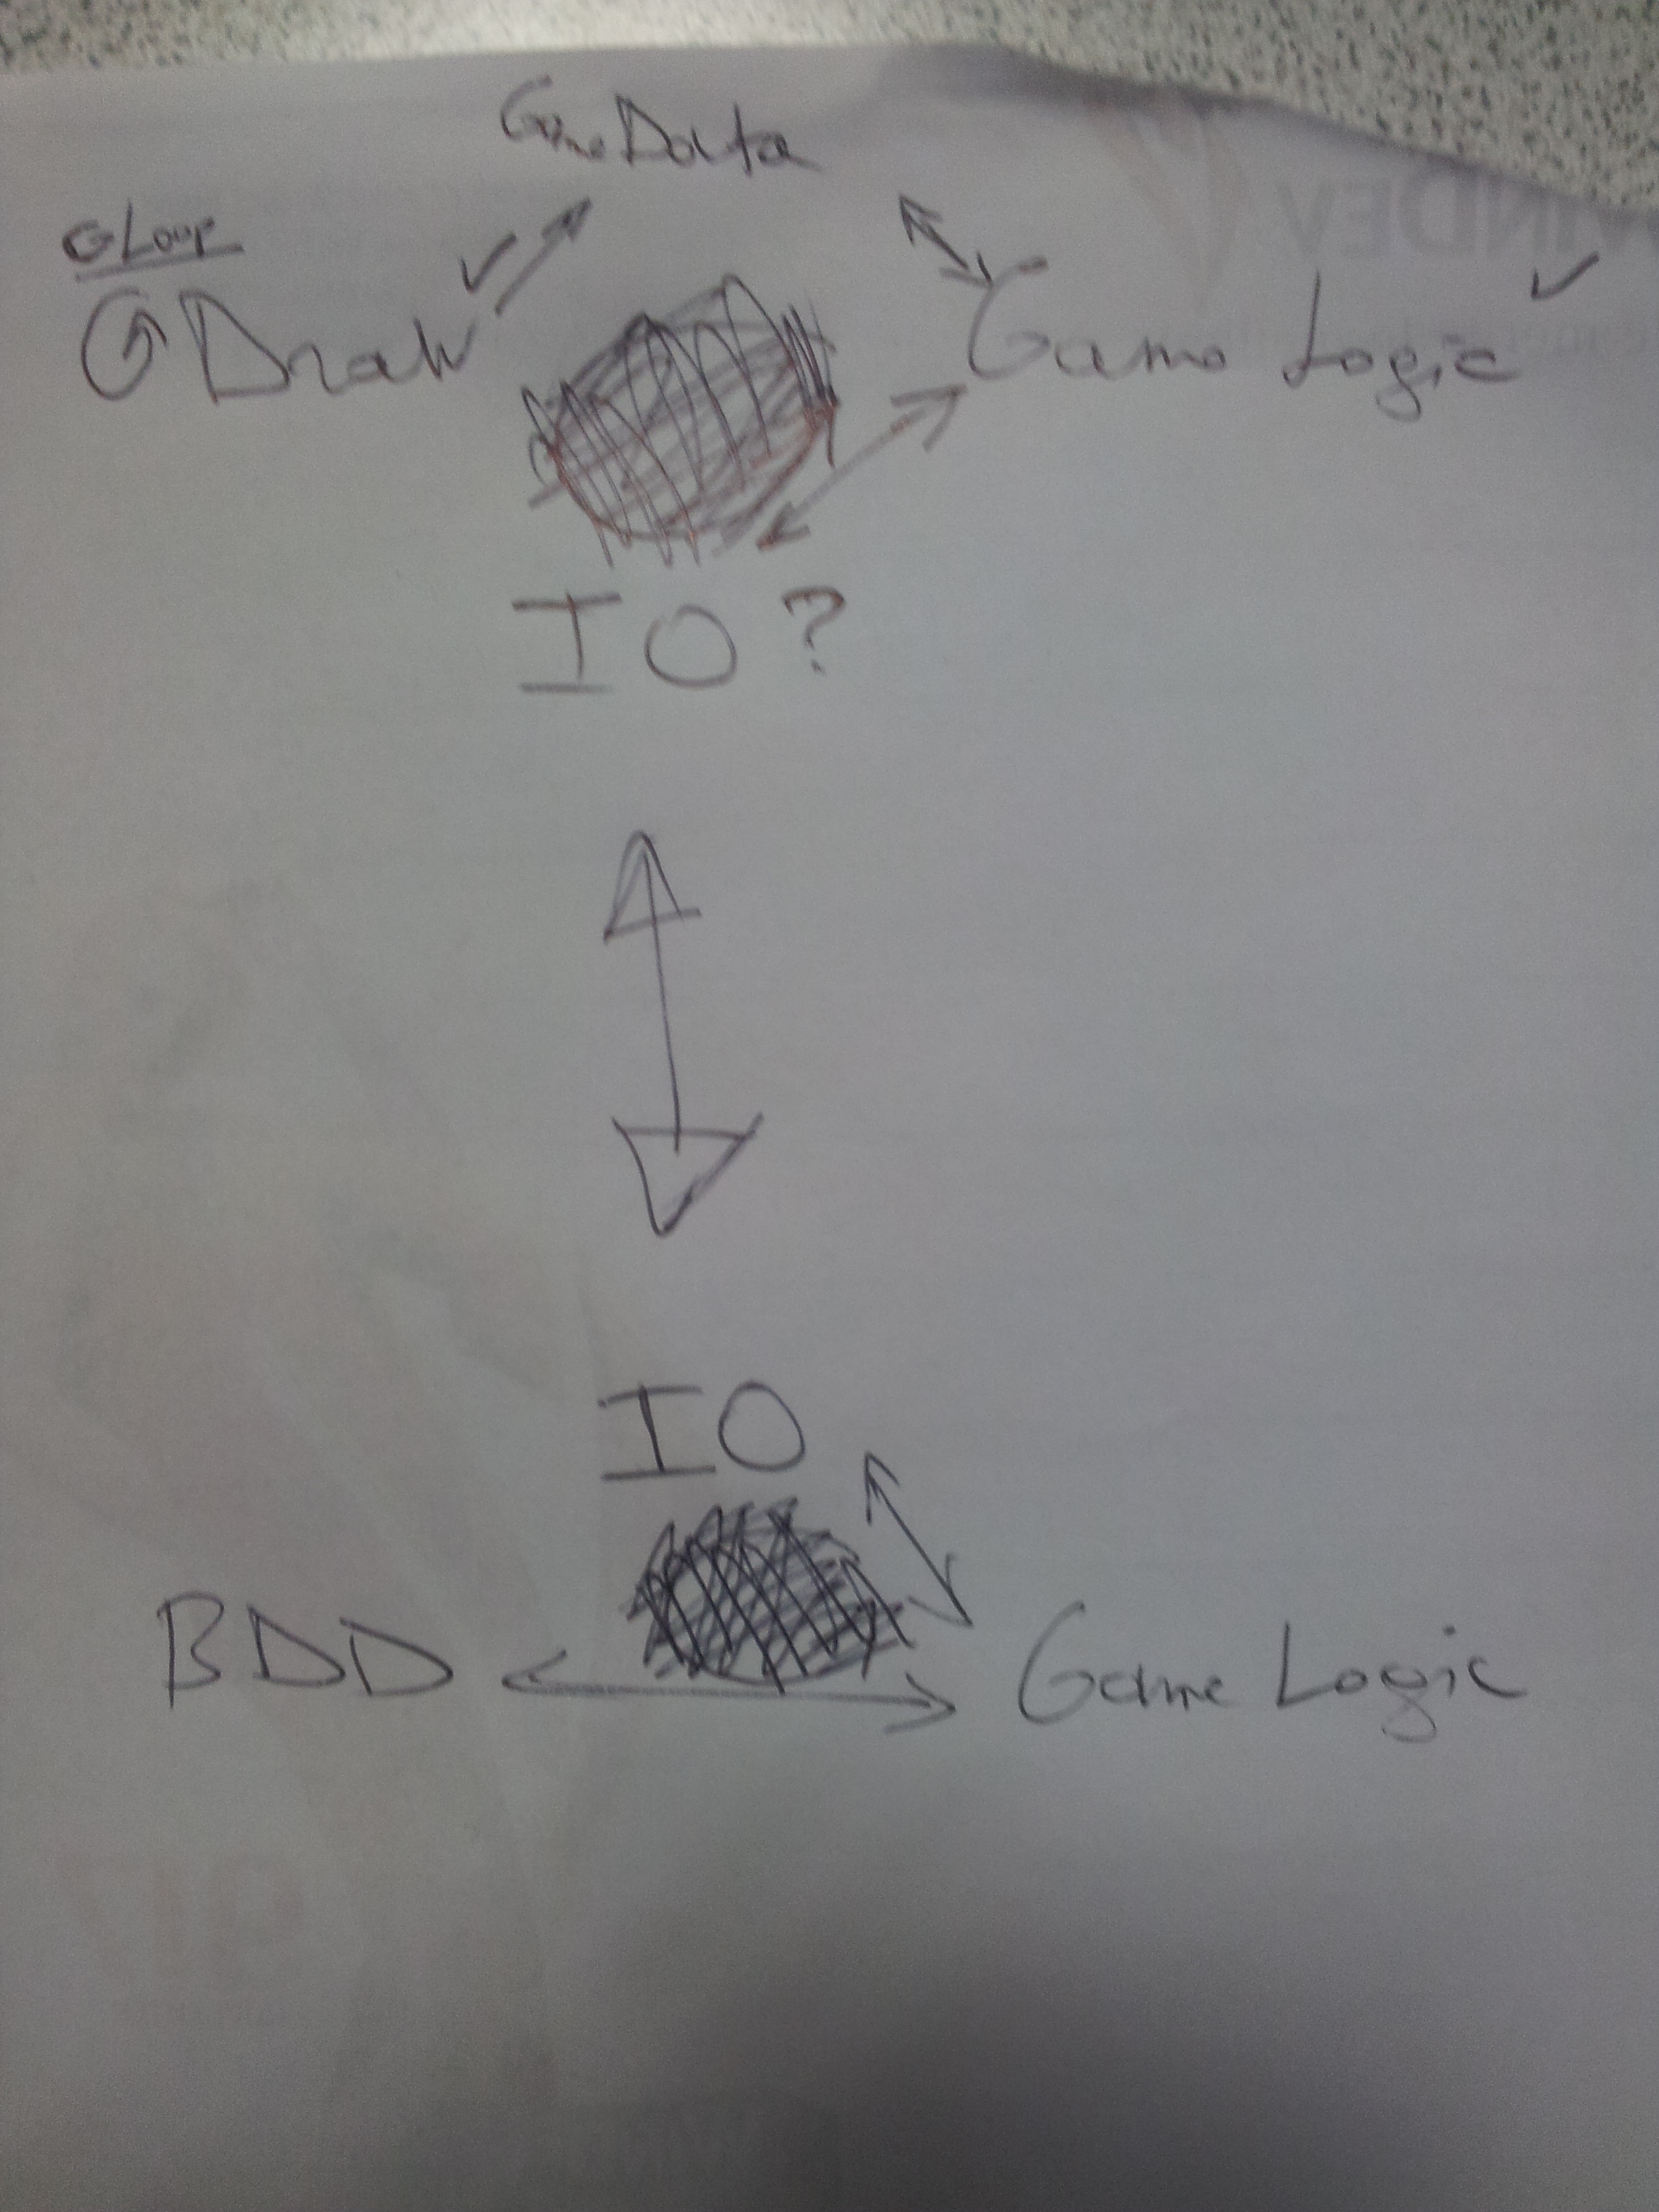 Game Data
GLoop
Draw
Game Logic
IO?
IO
BDD
Game Logic